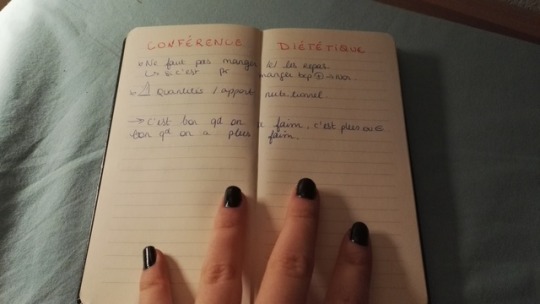 CONFÉRENCE DIÉTÉTIQUE
Ne faut pas manger les repas
c'est manger bcp
⚠ Quantités / apport nutritionnel
→ c'est bon qd on a faim, c'est plus
bon qd on a plus faim.